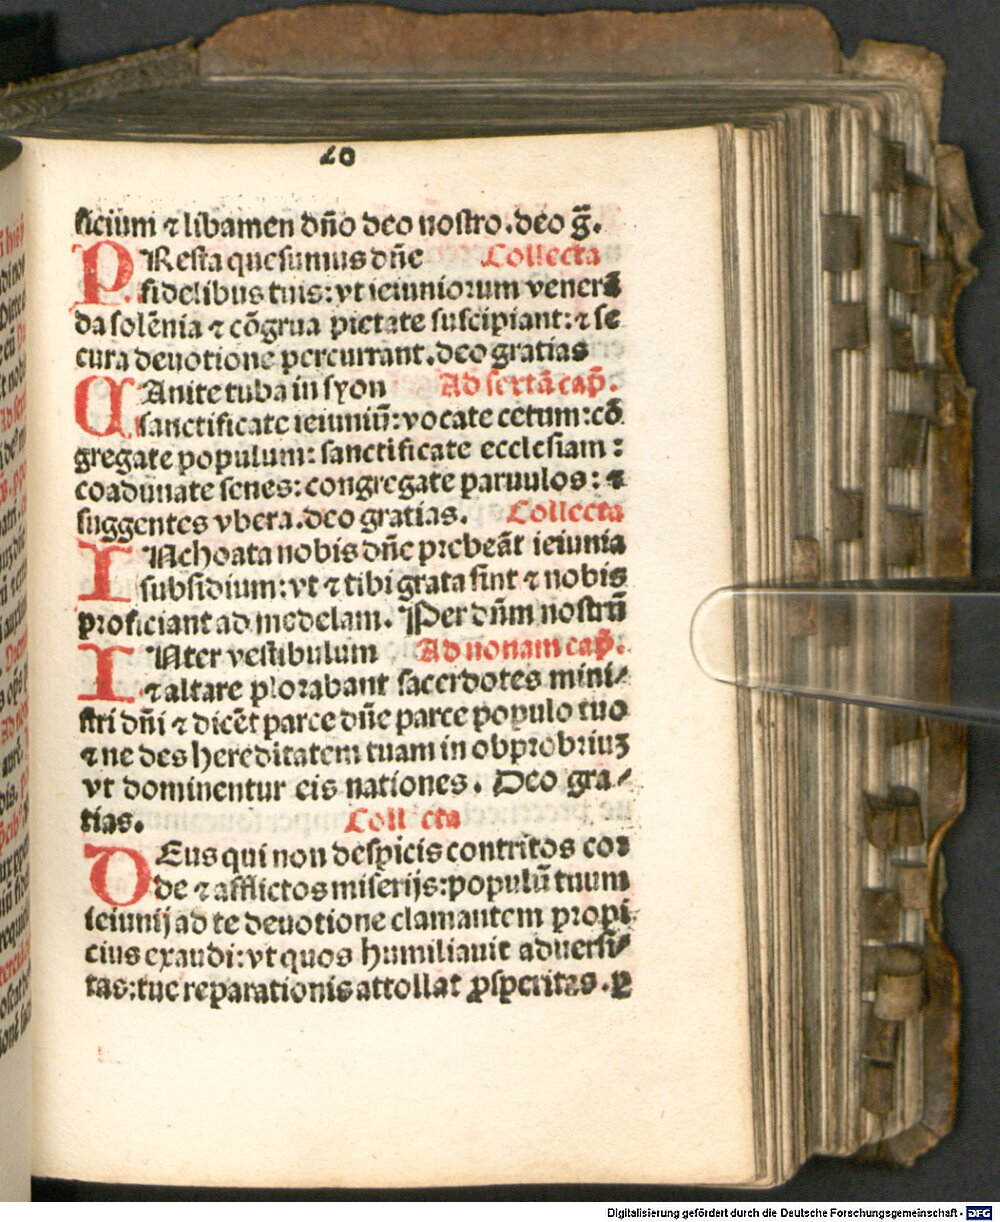 20
ficium ⁊ libamen dño deo nostro.deo g̃.
PResta quesumus dñe Collecta
fidelibus tuis:vt ieiuniorum venerā
da solēnia ⁊ cōgrua pietate suscipiant:⁊ se
cura deuotione percurrant.deo gratias
CAnite tuba in syon Ad sextā cap̄.
sanctificate ieiuniū:vocate cetum:cō
gregate populum: sanctificate ecclesiam :
coadunate senes:congregate paruulos: ⁊
suggentes vbera.deo gratias. Collecta
INchoata nobis dñe prebeāt ieiunia
subsidium:vt ⁊ tibi grata sint ⁊ nobis
proficiant ad medelam. Per dñm nostrū
INter vestibulum Ad nonam cap̄.
⁊ altare plorabant sacerdotes mini⸗
stri dñi ⁊ dicēt parce dñe parce populo tuo
⁊ ne des hereditatem tuam in obprobriuʒ
vt dominentur eis nationes. Deo gra⸗
tias. Collecta
DEus qui non despicis contritos cor
de ⁊ afflictos miserijs:populū tuum
ieiunij ad te deuotione clamantem propi
cius exaudi:vt quos humiliauit aduersi⸗
tas:tue reparationis attollat ꝓsperitas.P
Digitalisierung gefördert durch die Deutsche Forschungsgemeinschaft - DFG